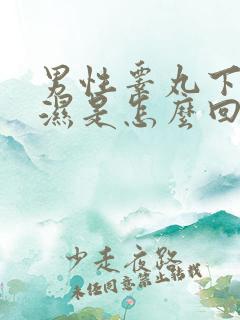 男性睾丸下
濕是怎麼回
少走夜路
未经同意禁止转载